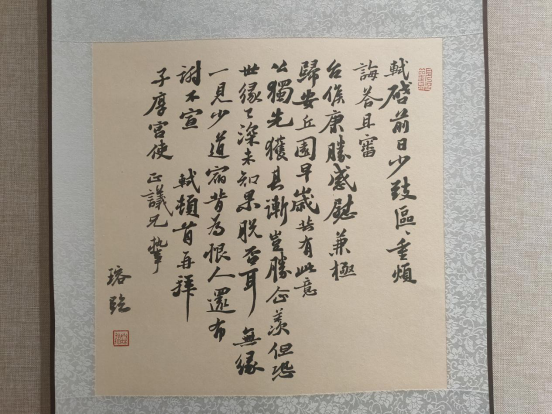 軾啓前日少致區〻重煩
誨答且審
台候康勝感慰兼極
歸安丘園早歲共有此意
公獨先獲其漸豈勝企羨但恐
世緣已深未知果脫否耳 無緣
一見少道宿昔為恨人還布
謝不宣 軾頓首再拜
子厚宮使正議兄執事
臨